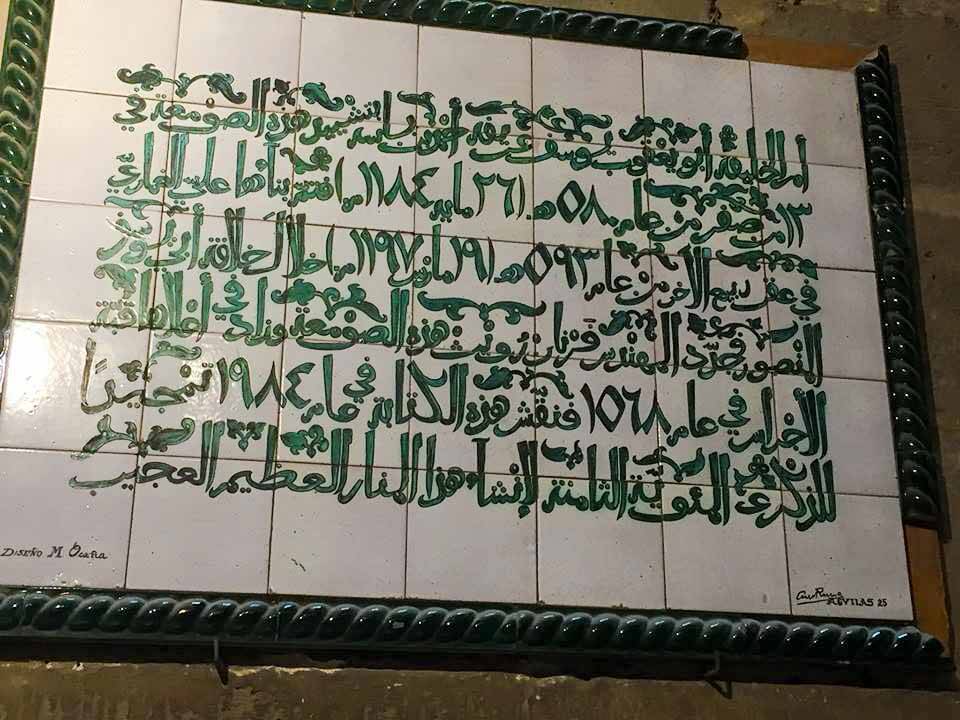 أمر الخليفة أبو يعقوب يوسف عريفه أحمد بن باسه بتشييد هذه الصومعة في
١٣ من صفر من عام ٥٨٠ هـ (٢٦ مايه ١١٨٤ م) علي الغماري
في عقب ربيع الآخر من عام ٥٩٣ هـ (١٩ مارس ١١٩٧ م) خلال خلافة أبي
المنصور فجدد المهندس فرنان رويث هذه الصومعة وزاد في أعلاها قبة
الأجراس في عام ١٥٦٨ فنقش هذه الكتابة في عام ١٩٨٤ تنجيزًا
للذكرى المئوية الثامنة لإنشاء هذا المنار العظيم العجيب
DISEÑO M. Ocaña